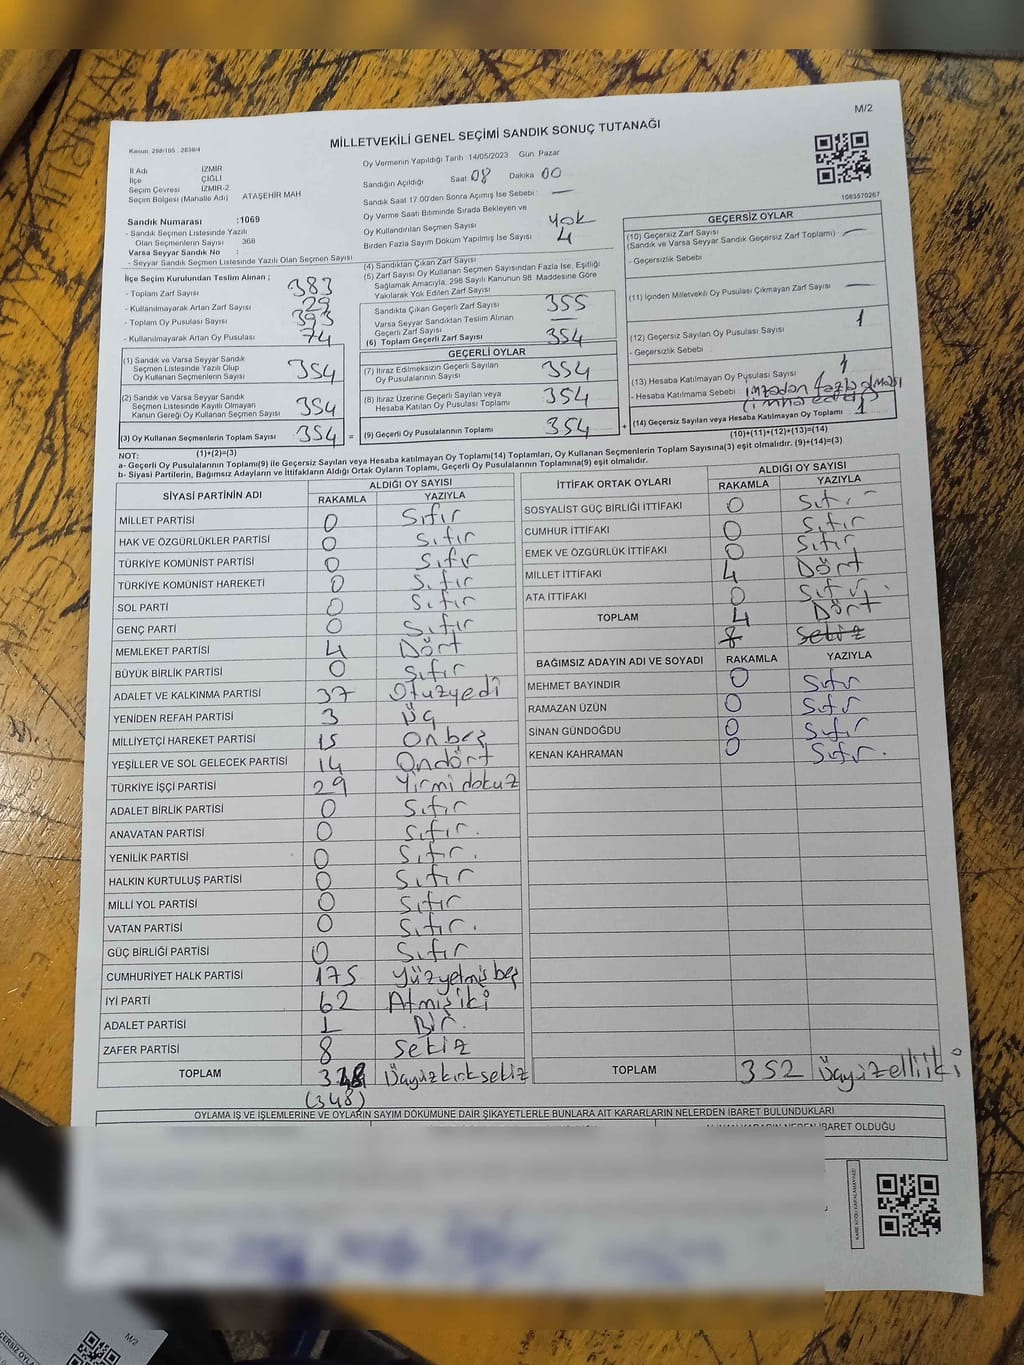 M/2
MİLLETVEKİLİ GENEL SEÇİMİ SANDIK SONUÇ TUTANAĞI
Kanun. 298/105 . 2839/4
İl Adı İZMİR
İlçe ÇİĞLİ
Seçim Çevresi İZMİR-2
Seçim Bölgesi (Mahalle Adı) ATAŞEHİR MAH
Sandık Numarası :1069
- Sandık Seçmen Listesinde Yazılı
Olan Seçmenlerin Sayısı 368
Varsa Seyyar Sandık No :
- Seyyar Sandık Seçmen Listesinde Yazılı Olan Seçmen Sayısı
Oy Vermenin Yapıldığı Tarih :14/05/2023 Gün Pazar
Sandığın Açıldığı Saat 08 Dakika 00
Sandık Saat 17.00'den Sonra Açımış İse Sebebi : —
Oy Verme Saati Bitiminde Sırada Bekleyen ve
Oy Kullandırılan Seçmen Sayısı Yok
Birden Fazla Sayım Döküm Yapılmış İse Sayısı 4
1083570267
İlçe Seçim Kurulundan Teslim Alınan ;
- Toplam Zarf Sayısı 383
- Kullanılmayarak Artan Zarf Sayısı 29
- Toplam Oy Pusulası Sayısı 393
- Kullanılmayarak Artan Oy Pusulası 74
(1) Sandık ve Varsa Seyyar Sandık
Seçmen Listesinde Yazılı Olup
Oy Kullanan Seçmenlerin Sayısı 354
(2) Sandık ve Varsa Seyyar Sandık
Seçmen Listesinde Kayıtlı Olmayan
Kanun Gereği Oy Kullanan Seçmen Sayısı 354
(3) Oy Kullanan Seçmenlerin Toplam Sayısı 354 =
(4) Sandıktan Çıkan Zarf Sayısı
(5) Zarf Sayısı Oy Kullanan Seçmen Sayısından Fazla İse, Eşitliği
Sağlamak Amacıyla, 298 Sayılı Kanunun 98. Maddesine Göre
Yakılarak Yok Edilen Zarf Sayısı
Sandıkta Çıkan Geçerli Zarf Sayısı 355
Varsa Seyyar Sandıktan Teslim Alınan
Geçerli Zarf Sayısı —
(6) Toplam Geçerli Zarf Sayısı 354
GEÇERLİ OYLAR
(7) İtiraz Edilmeksizin Geçerli Sayılan
Oy Pusulalarının Sayısı 354
(8) İtiraz Üzerine Geçerli Sayılan veya
Hesaba Katılan Oy Pusulası Toplamı 354
(9) Geçerli Oy Pusulalarının Toplamı 354 +
GEÇERSİZ OYLAR
(10) Geçersiz Zarf Sayısı —
(Sandık ve Varsa Seyyar Sandık Geçersiz Zarf Toplamı)
- Geçersizlik Sebebi
(11) İçinden Milletvekili Oy Pusulası Çıkmayan Zarf Sayısı —
(12) Geçersiz Sayılan Oy Pusulası Sayısı 1
- Geçersizlik Sebebi
(13) Hesaba Katılmayan Oy Pusulası Sayısı 1
- Hesaba Katılmama Sebebi imzadan fazla olması
(imha edildi)
(14) Geçersiz Sayılan veya Hesaba Katılmayan Oy Toplamı 1
NOT: (1)+(2)=(3)
(10)+(11)+(12)+(13)=(14)
a- Geçerli Oy Pusulalarının Toplamı(9) ile Geçersiz Sayılan veya Hesaba katılmayan Oy Toplamı(14) Toplamları, Oy Kullanan Seçmenlerin Toplam Sayısına(3) eşit olmalıdır. (9)+(14)=(3)
b- Siyasi Partilerin, Bağımsız Adayların ve İttifakların Aldığı Ortak Oyların Toplamı, Geçerli Oy Pusulalarının Toplamına(9) eşit olmalıdır.
SİYASİ PARTİNİN ADI ALDIĞI OY SAYISI
RAKAMLA YAZIYLA
MİLLET PARTİSİ 0 Sıfır
HAK VE ÖZGÜRLÜKLER PARTİSİ 0 Sıfır
TÜRKİYE KOMÜNİST PARTİSİ 0 Sıfır
TÜRKİYE KOMÜNİST HAREKETİ 0 Sıfır
SOL PARTİ 0 Sıfır
GENÇ PARTİ 0 Sıfır
MEMLEKET PARTİSİ 4 Dört
BÜYÜK BİRLİK PARTİSİ 0 Sıfır
ADALET VE KALKINMA PARTİSİ 37 Otuzyedi
YENİDEN REFAH PARTİSİ 3 Üç
MİLLİYETÇİ HAREKET PARTİSİ 15 Onbeş
YEŞİLLER VE SOL GELECEK PARTİSİ 14 Ondört
TÜRKİYE İŞÇİ PARTİSİ 29 Yirmi dokuz
ADALET BİRLİK PARTİSİ 0 Sıfır
ANAVATAN PARTİSİ 0 Sıfır.
YENİLİK PARTİSİ 0 Sıfır.
HALKIN KURTULUŞ PARTİSİ 0 Sıfır
MİLLİ YOL PARTİSİ 0 Sıfır
VATAN PARTİSİ 0 Sıfır.
GÜÇ BİRLİĞİ PARTİSİ 0 Sıfır
CUMHURİYET HALK PARTİSİ 175 Yüzyetmiş beş
İYİ PARTİ 62 Atmışiki
ADALET PARTİSİ 1 Bir.
ZAFER PARTİSİ 8 Sekiz
TOPLAM 348 Üçyüzkırksekiz
(348)
İTTİFAK ORTAK OYLARI ALDIĞI OY SAYISI
RAKAMLA YAZIYLA
SOSYALİST GÜÇ BİRLİĞİ İTTİFAKI 0 Sıfır
CUMHUR İTTİFAKI 0 Sıfır
EMEK VE ÖZGÜRLÜK İTTİFAKI 0 Sıfır
MİLLET İTTİFAKI 4 Dört
ATA İTTİFAKI 0 Sıfır.
TOPLAM 4 Dört
8 Sekiz
BAĞIMSIZ ADAYIN ADI VE SOYADI RAKAMLA YAZIYLA
MEHMET BAYINDIR 0 Sıfır
RAMAZAN ÜZÜN 0 Sıfır
SİNAN GÜNDOĞDU 0 Sıfır
KENAN KAHRAMAN 0 Sıfır.
TOPLAM 352 Üçyüzelliiki
OYLAMA İŞ VE İŞLEMLERİNE VE OYLARIN SAYIM DÖKÜMÜNE DAİR ŞİKAYETLERLE BUNLARA AİT KARARLARIN NELERDEN İBARET BULUNDUKLARI
İBARET OLDUĞU
M/2